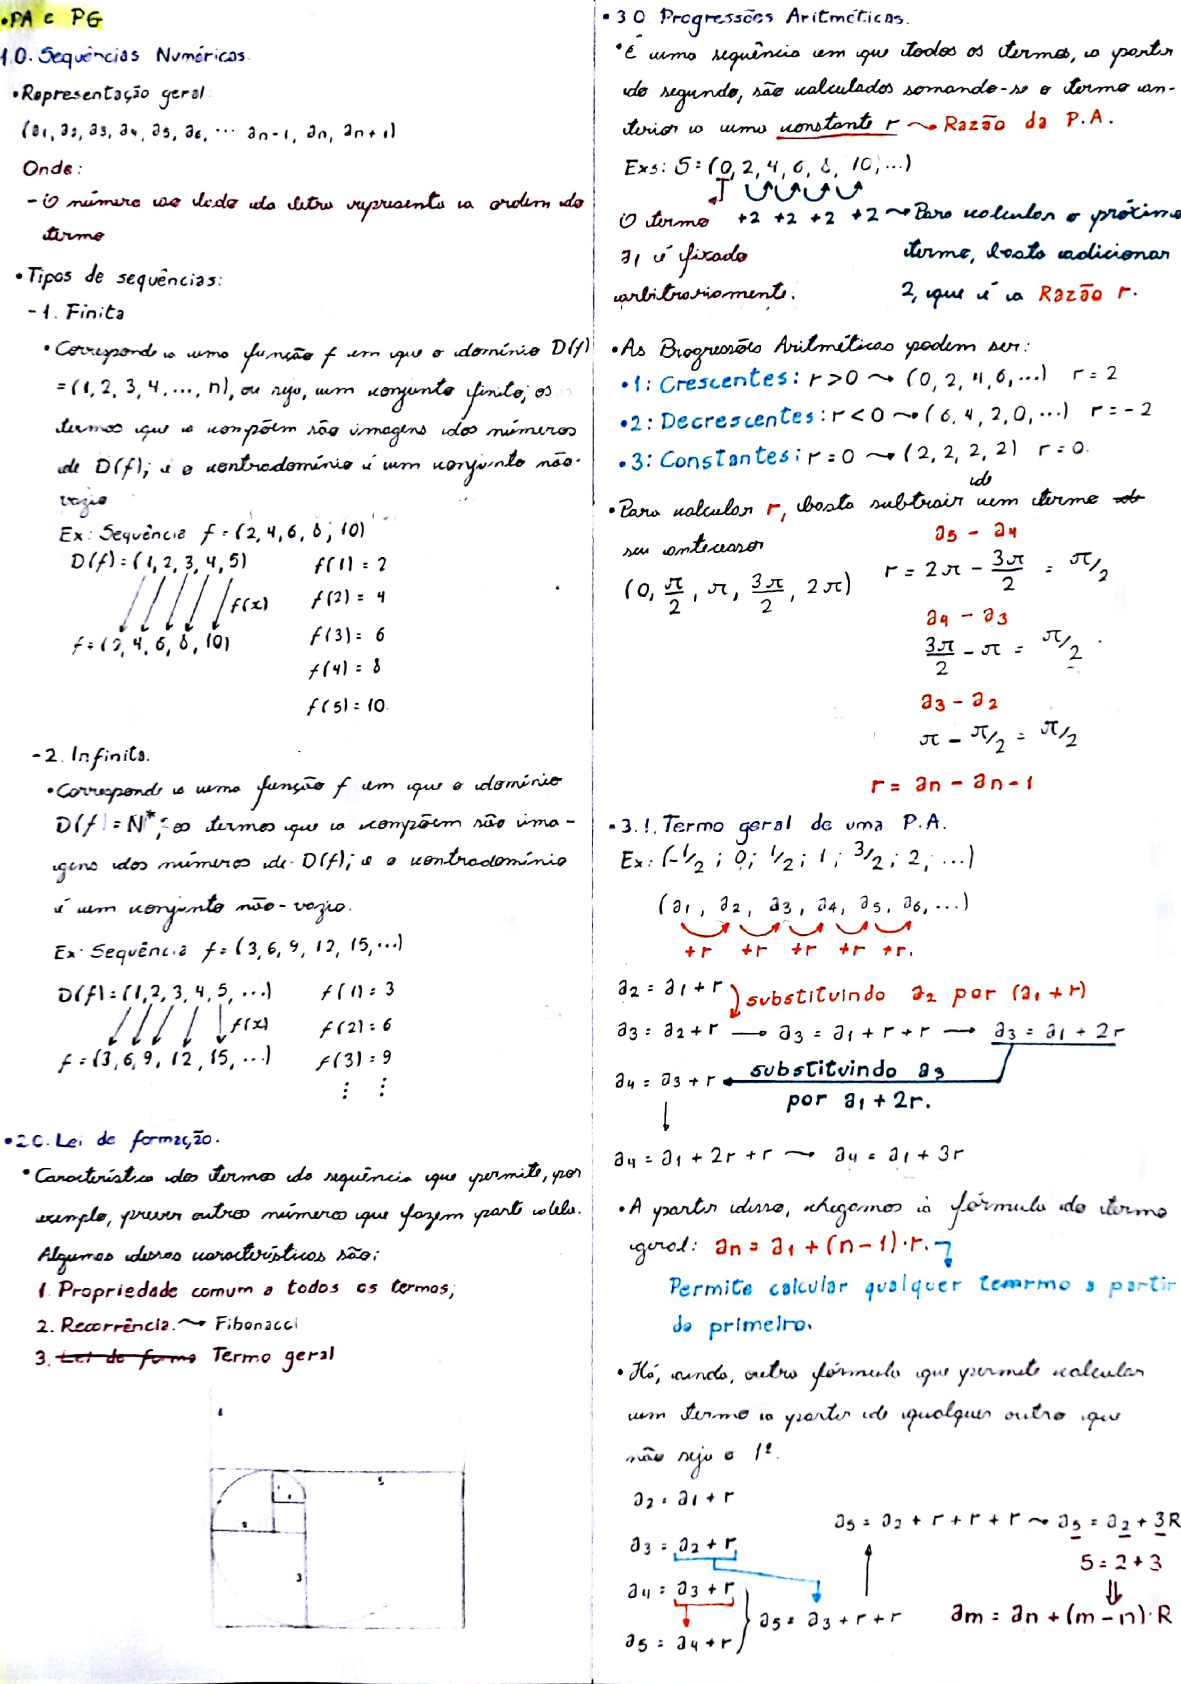 •PA e PG
1.0. Sequências Numéricas.
•Representação geral:
(a1, a2, a3, a4, a5, a6, ... an-1, an, an+1)
Onde:
- O número ao lado da letra representa a ordem do
termo
•Tipos de sequências:
-1. Finita
•Corresponde a uma função f em que o domínio D(f)
=(1, 2, 3, 4, ..., n), ou seja, um conjunto finito; os
termos que a compõem são imagens dos números
de D(f); e o contradomínio é um conjunto não-
vazio
Ex: Sequência f = (2, 4, 6, 8, 10)
D(f) = (1, 2, 3, 4, 5)
f(x)
f = (2, 4, 6, 8, 10)
f(1) = 2
f(2) = 4
f(3) = 6
f(4) = 8
f(5) = 10.
-2. Infinita.
•Corresponde a uma função f em que o domínio
D(f) = N*; os termos que a compõem são ima-
gens dos números de D(f); e o contradomínio
é um conjunto não-vazio.
Ex: Sequência f = (3, 6, 9, 12, 15, ...)
D(f) = (1, 2, 3, 4, 5, ...)
f(x)
f = (3, 6, 9, 12, 15, ...)
f(1) = 3
f(2) = 6
f(3) = 9
⋮ ⋮
•2.0. Lei de formação.
•Característica dos termos da sequência que permite, por
exemplo, prever outros números que fazem parte dela.
Algumas dessas características são:
1. Propriedade comum a todos os termos;
2. Recorrência. ⤳ Fibonacci
3. Lei de forma Termo geral
5
3
•3.0 Progressões Aritméticas.
•É uma sequência em que todos os termos, a partir
do segundo, são calculados somando-se o termo an-
terior a uma constante r ⤳ Razão da P.A.
Exs: S = (0, 2, 4, 6, 8, 10, ...)
+2 +2 +2 +2 ⤳ Para calcular o próximo
termo, basta adicionar
2, que é a Razão r.
O termo
a1 é fixado
arbitrariamente.
•As Progressões Aritméticas podem ser:
•1: Crescentes: r > 0 ⤳ (0, 2, 4, 6, ...) r = 2
•2: Decrescentes: r < 0 ⤳ (6, 4, 2, 0, ...) r = -2
•3: Constantes: r = 0 ⤳ (2, 2, 2, 2) r = 0.
•Para calcular r, basta subtrair de um termo do
seu antecessor
(0, π/2, π, 3π/2, 2π)
a5 - a4
r = 2π - 3π/2 = π/2
a4 - a3
3π/2 - π = π/2
a3 - a2
π - π/2 = π/2
r = an - an-1
•3.1. Termo geral de uma P.A.
Ex: (-1/2 ; 0; 1/2 ; 1 ; 3/2 ; 2, ...)
(a1, a2, a3, a4, a5, a6, ...)
+r +r +r +r +r.
a2 = a1 + r
substituindo a2 por (a1 + r)
a3 = a2 + r → a3 = a1 + r + r → a3 = a1 + 2r
a4 = a3 + r substituindo a3
por a1 + 2r.
a4 = a1 + 2r + r ⤳ a4 = a1 + 3r
•A partir disso, chegamos à fórmula do termo
geral: an = a1 + (n-1)·r.
Permite calcular qualquer tearmo a partir
do primeiro.
•Há, ainda, outra fórmula que permite calcular
um termo a partir de qualquer outro que
não seja o 1º.
a2 = a1 + r
a3 = a2 + r
a4 = a3 + r
a5 = a4 + r
a5 = a3 + r + r
a5 = a2 + r + r + r ⤳ a5 = a2 + 3R
5 = 2 + 3
⇓
am = an + (m-n)·R